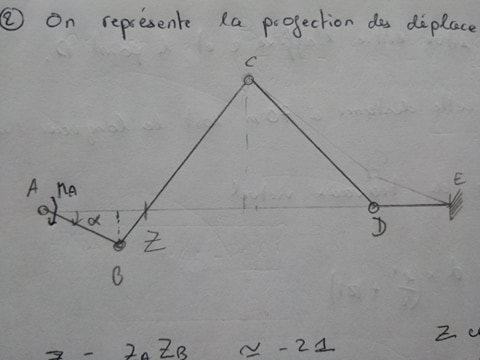 ② On représente la projection des déplace
C
A MA E
α
B Z D
Z = ZA ZB ≃ -21 Z